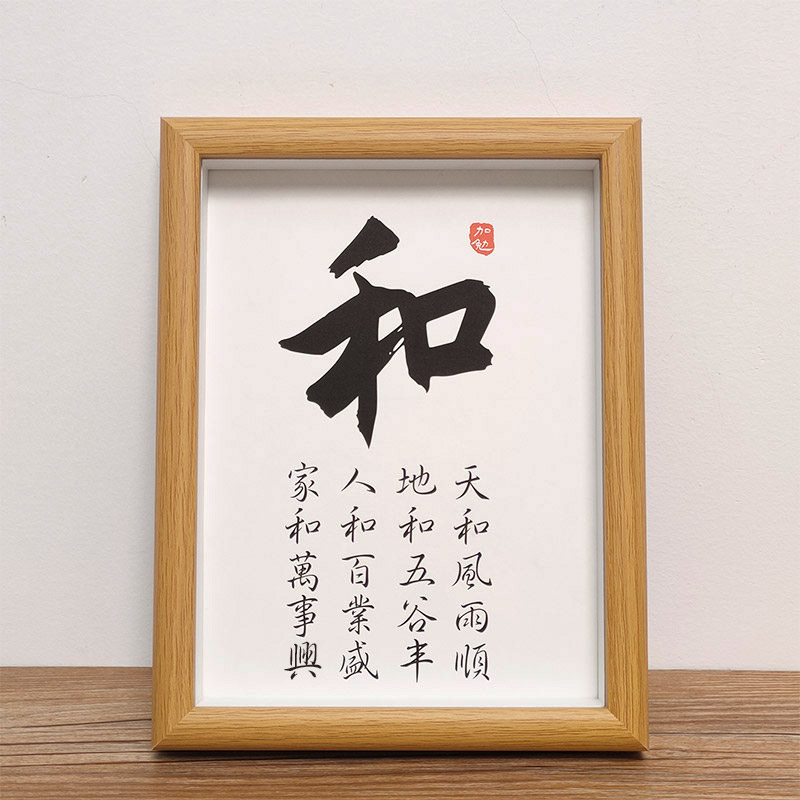 和
加勉
天和風雨順
地和五谷丰
人和百業盛
家和萬事興